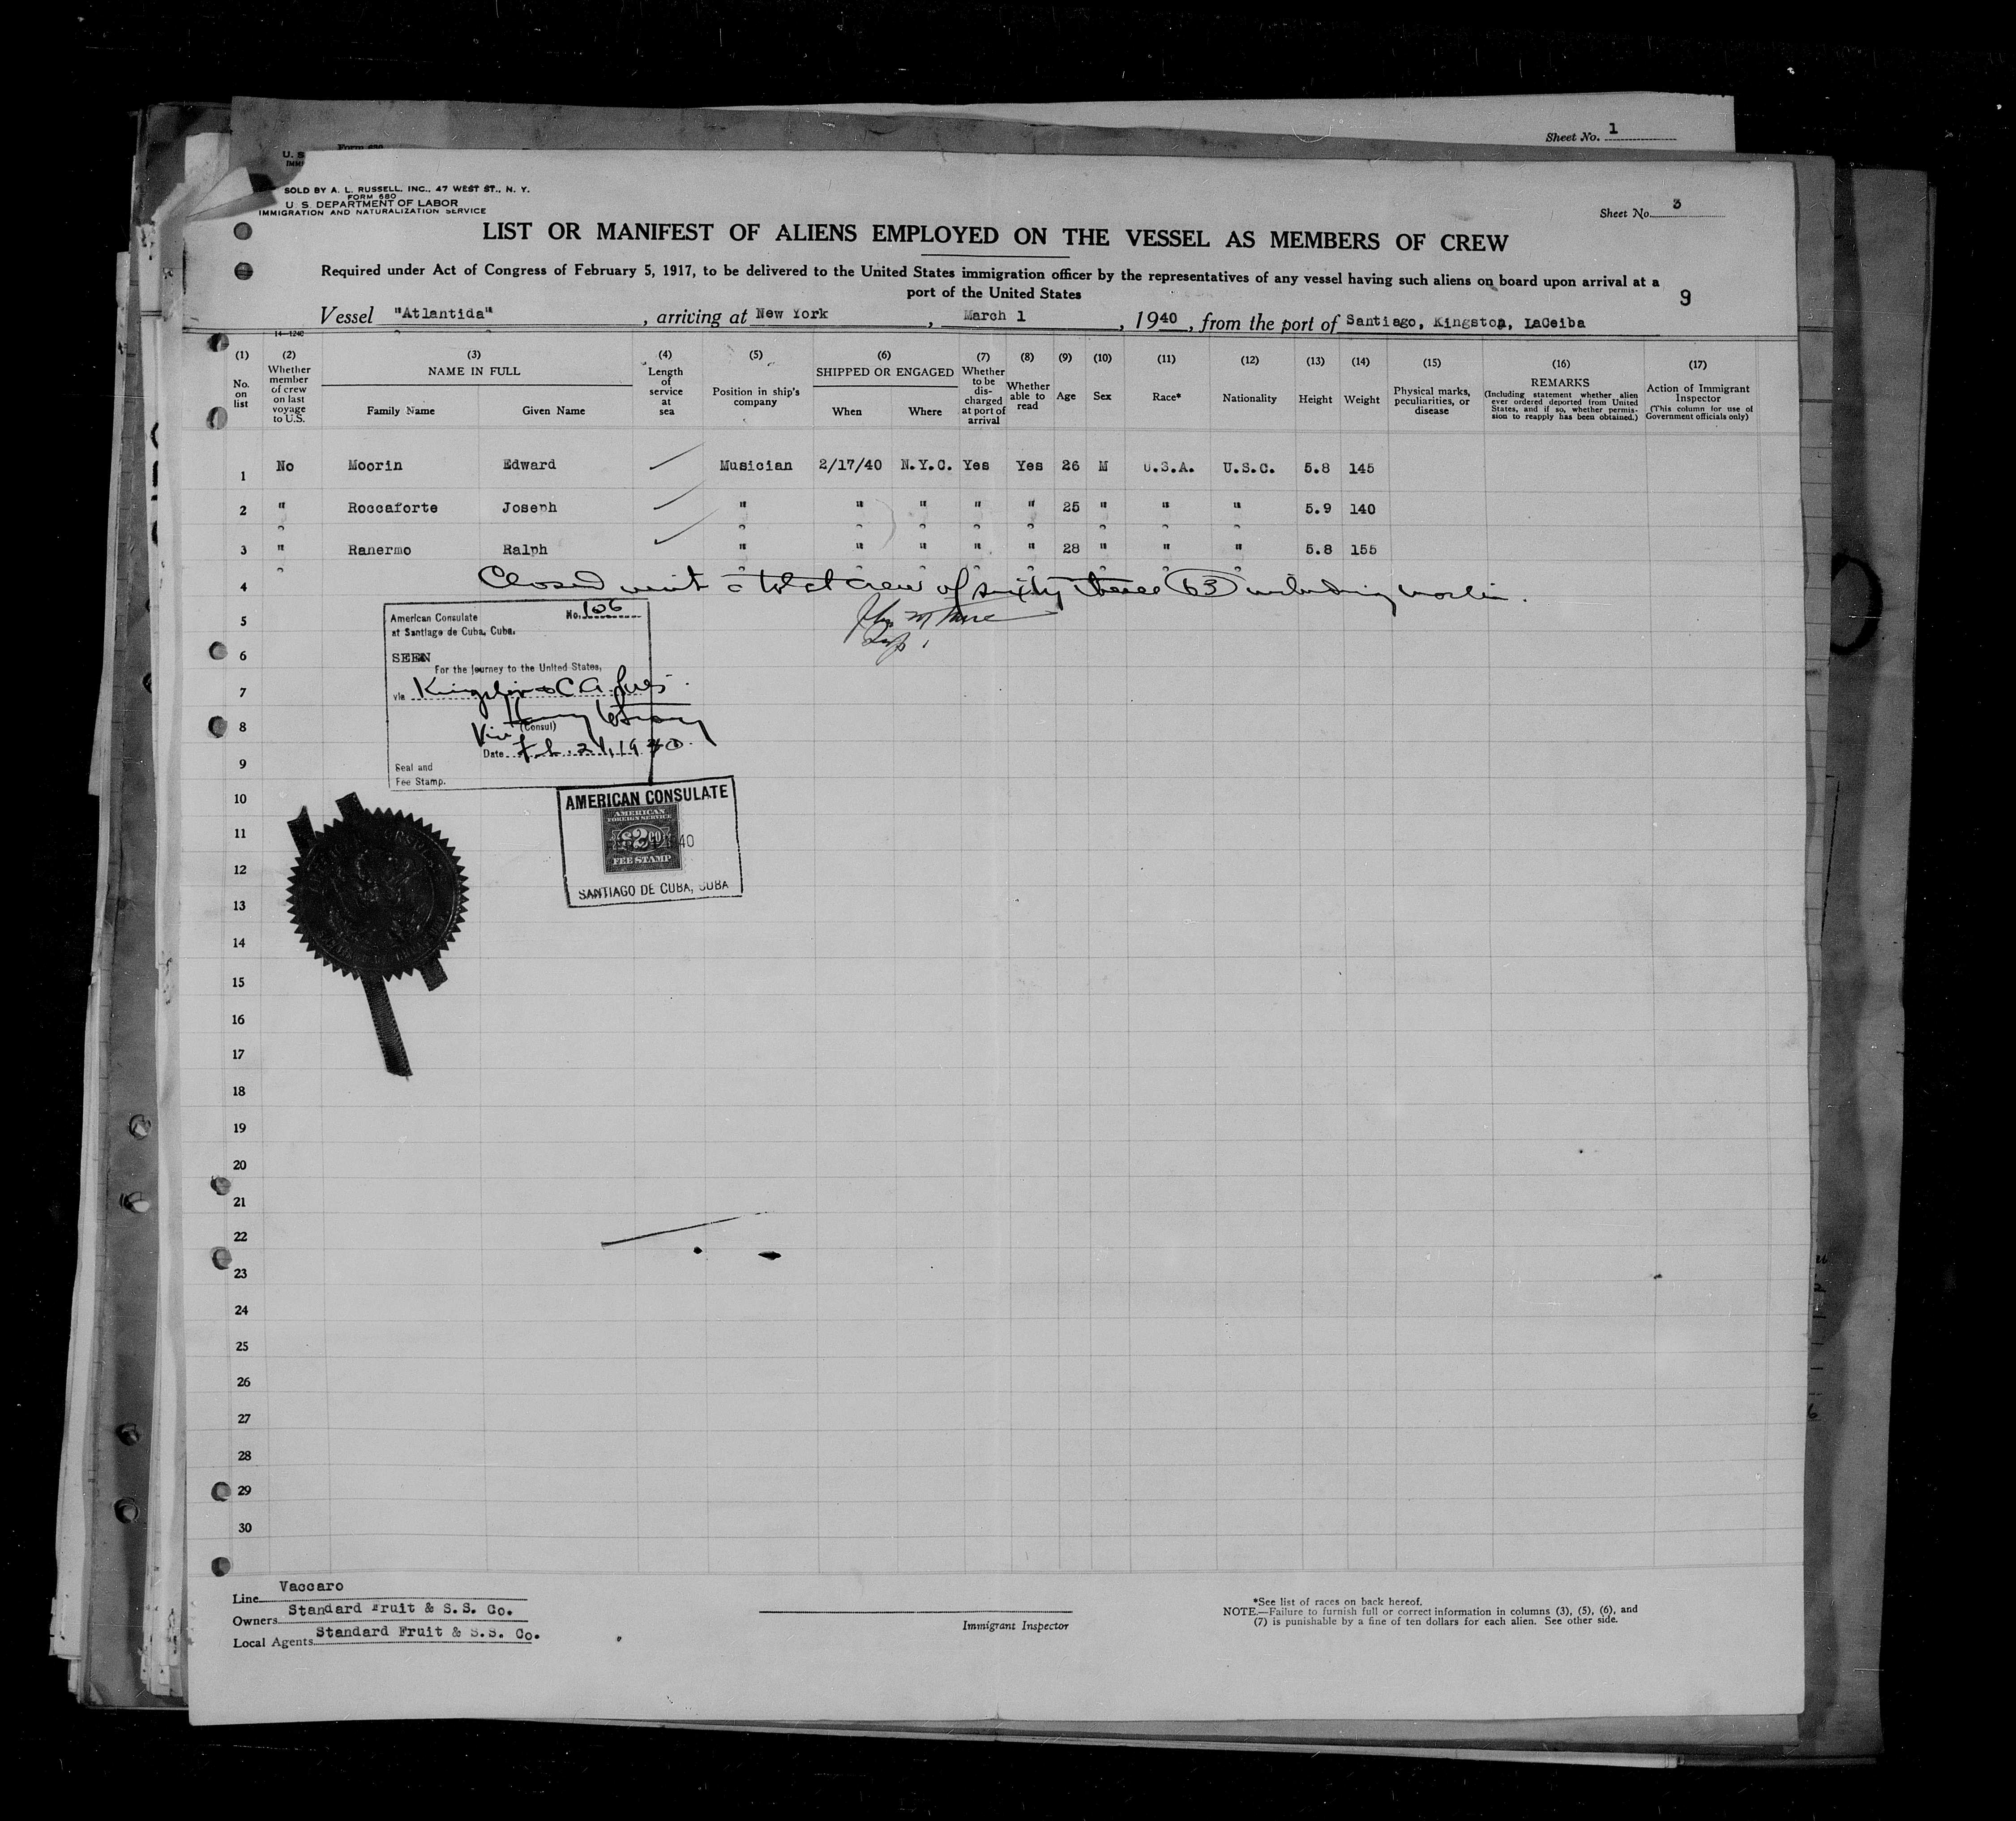 Sheet No. 1
Form 680
U. S.
SOLD BY A. L. RUSSELL, INC., 47 WEST ST., N. Y.
FORM 680
U. S. DEPARTMENT OF LABOR
IMMIGRATION AND NATURALIZATION SERVICE
Sheet No. 3
LIST OR MANIFEST OF ALIENS EMPLOYED ON THE VESSEL AS MEMBERS OF CREW
Required under Act of Congress of February 5, 1917, to be delivered to the United States immigration officer by the representatives of any vessel having such aliens on board upon arrival at a
port of the United States
9
Vessel "Atlantida", arriving at New York, March 1, 1940, from the port of Santiago, Kingston, LaCeiba
14-1240
(1) No. on list
(2) Whether member of crew on last voyage to U.S.
(3) NAME IN FULL Family Name Given Name
(4) Length of service at sea
(5) Position in ship's company
(6) SHIPPED OR ENGAGED When Where
(7) Whether to be discharged at port of arrival
(8) Whether able to read
(9) Age
(10) Sex
(11) Race*
(12) Nationality
(13) Height
(14) Weight
(15) Physical marks, peculiarities, or disease
(16) REMARKS (Including statement whether alien ever ordered deported from United States, and if so, whether permission to reapply has been obtained.)
(17) Action of Immigrant Inspector (This column for use of Government officials only)
1 No Moorin Edward Musician 2/17/40 N.Y.C. Yes Yes 26 M U.S.A. U.S.C. 5.8 145
2 " Roccaforte Joseph " " " " " 25 " " " 5.9 140
3 " Ranermo Ralph " " " " " 28 " " " 5.8 155
4 Closed with a total crew of sixty three 63 including master.
5
6
7
8
9
10
11
12
13
14
15
16
17
18
19
20
21
22
23
24
25
26
27
28
29
30
American Consulate No. 106
at Santiago de Cuba, Cuba.
SEEN
For the journey to the United States,
via Kingston
Vice (Consul)
Date Feb. 21, 1940.
Seal and
Fee Stamp.
AMERICAN CONSULATE
AMERICAN
FOREIGN SERVICE
$2.00
FEE STAMP
SANTIAGO DE CUBA, CUBA
Line Vaccaro
Owners Standard Fruit & S.S. Co.
Local Agents Standard Fruit & S.S. Co.
Immigrant Inspector
*See list of races on back hereof.
NOTE.—Failure to furnish full or correct information in columns (3), (5), (6), and
(7) is punishable by a fine of ten dollars for each alien. See other side.